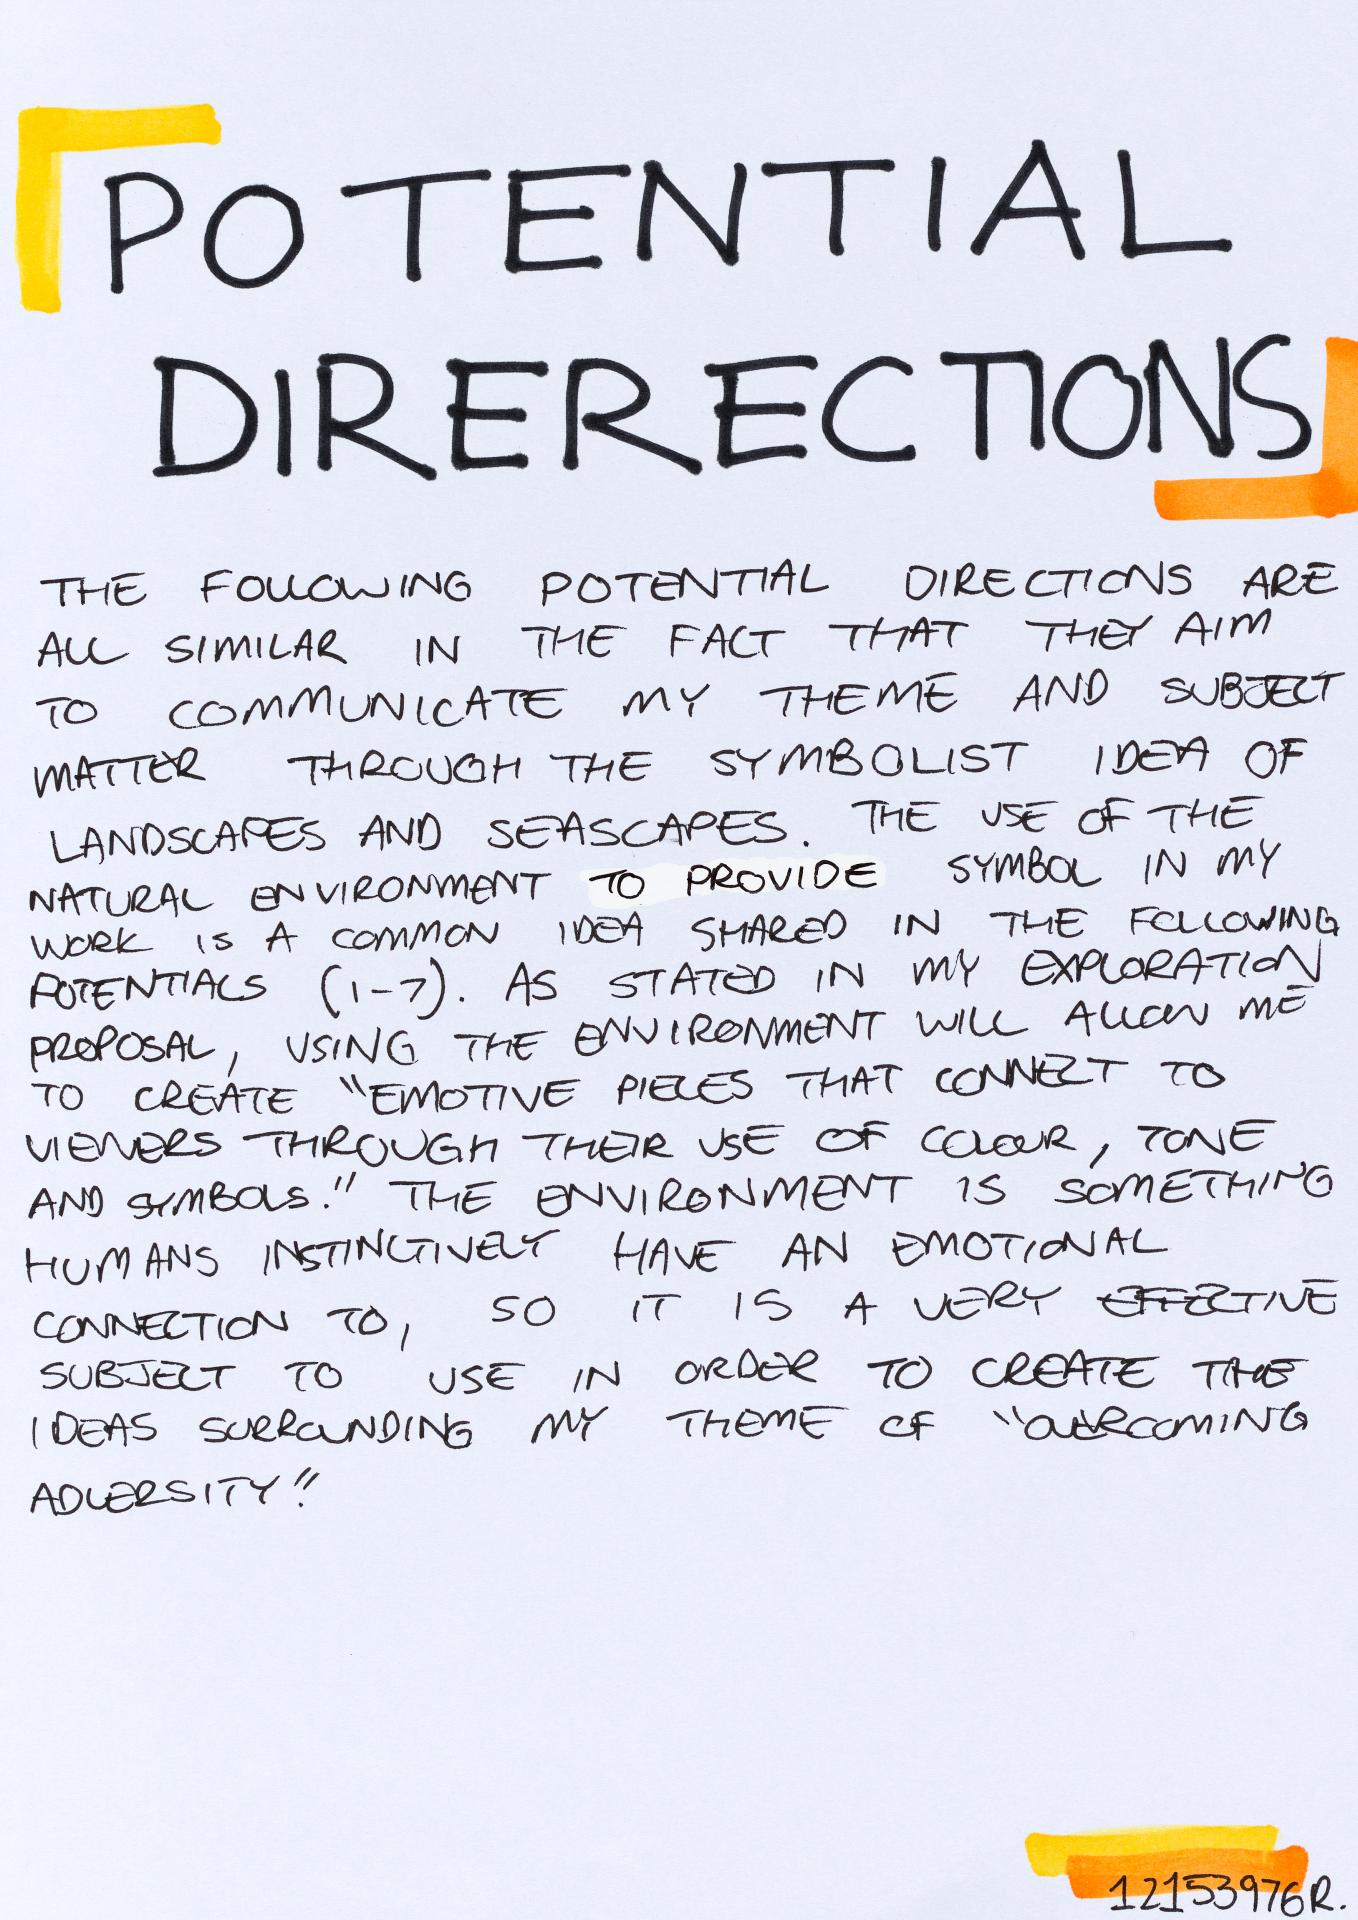 POTENTIAL
DIRERECTIONS
THE FOLLOWING POTENTIAL DIRECTIONS ARE
ALL SIMILAR IN THE FACT THAT THEY AIM
TO COMMUNICATE MY THEME AND SUBJECT
MATTER THROUGH THE SYMBOLIST IDEA OF
LANDSCAPES AND SEASCAPES. THE USE OF THE
NATURAL ENVIRONMENT TO PROVIDE SYMBOL IN MY
WORK IS A COMMON IDEA SHARED IN THE FOLLOWING
POTENTIALS (1-7). AS STATED IN MY EXPLORATION
PROPOSAL, USING THE ENVIRONMENT WILL ALLOW ME
TO CREATE "EMOTIVE PIECES THAT CONNECT TO
VIEWERS THROUGH THEIR USE OF COLOUR, TONE
AND SYMBOLS." THE ENVIRONMENT IS SOMETHING
HUMANS INSTINCTIVELY HAVE AN EMOTIONAL
CONNECTION TO, SO IT IS A VERY EFFECTIVE
SUBJECT TO USE IN ORDER TO CREATE THE
IDEAS SURROUNDING MY THEME OF "OVERCOMING
ADVERSITY"
12153976R.